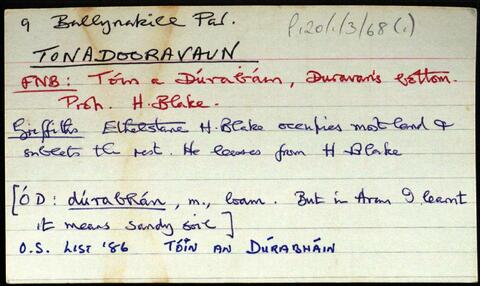 9 Ballynakill Par.
P120/1/3/68(1)
TONADOORAVAUN
FNB: Tóin a Dúrabáin, Duravan's bottom.
Proh. H. Blake.
Griffiths Ethelstane H. Blake occupies most land &
sublets the rest. He leases from H Blake
[ÓD: dúrabhán, m., loam. But in Aran I learnt
it means sandy soil]
O.S. LIST '86 TÓIN AN DÚRABHÁIN